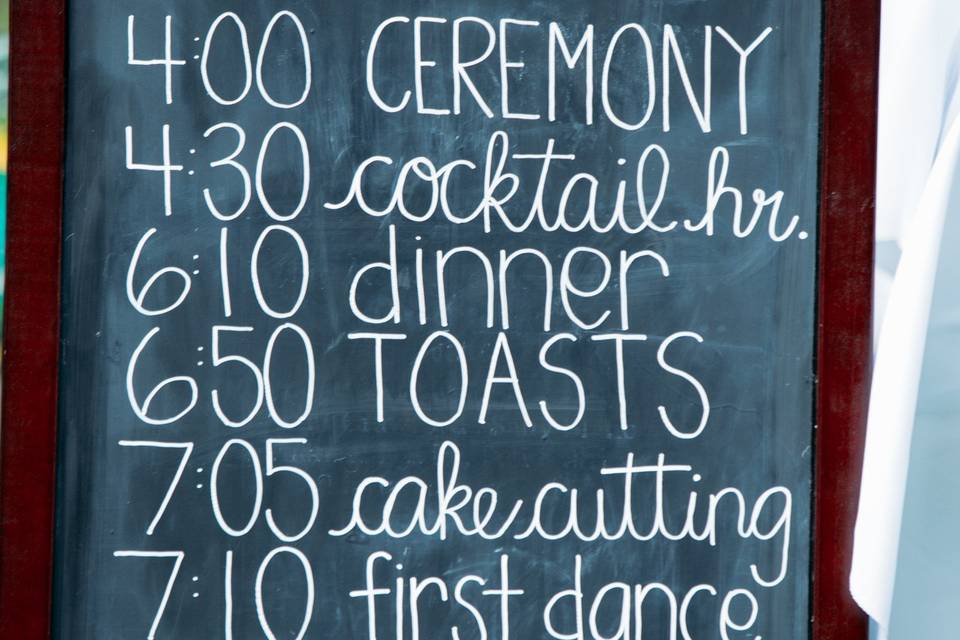 4:00 CEREMONY
4:30 cocktail hr.
6:10 dinner
6:50 TOASTS
7:05 cake cutting
7:10 first dance